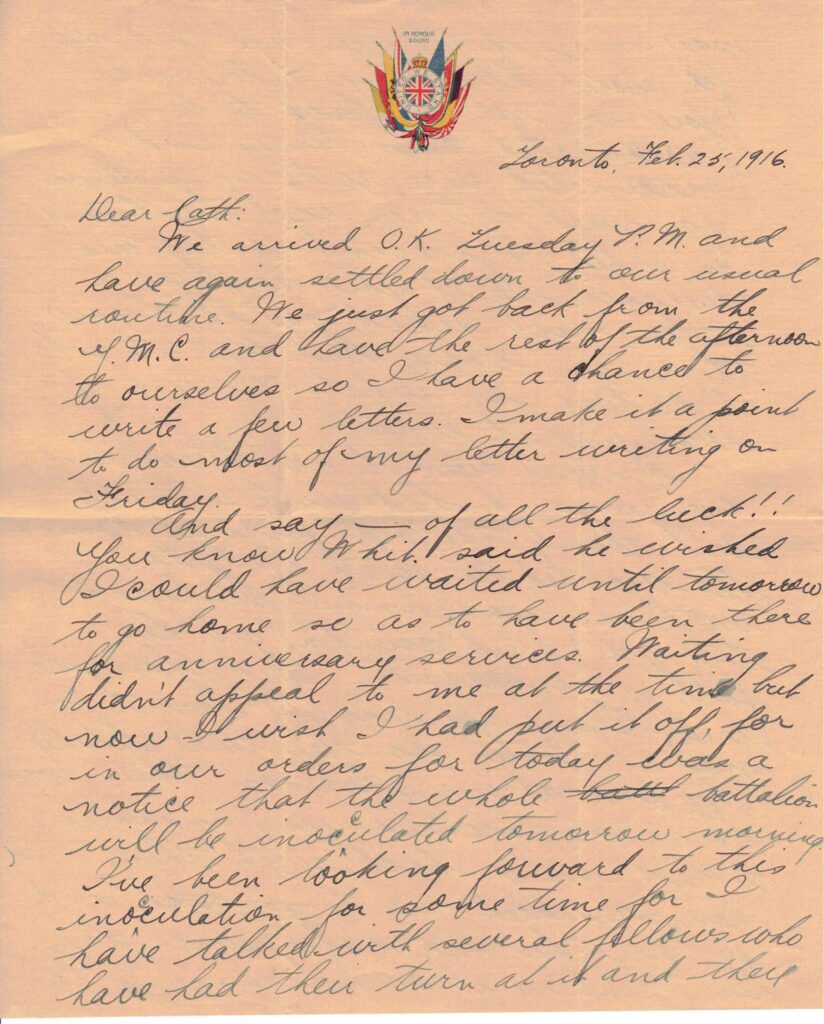 IN HONOUR
BOUND
UNITED WE STAND
Toronto, Feb. 25, 1916.
Dear Cath:
We arrived O.K. Tuesday P.M. and
have again settled down to our usual
routine. We just got back from the
Y.M.C. and have the rest of the afternoon
to ourselves so I have a chance to
write a few letters. I make it a point
to do most of my letter writing on
Friday.
And say — of all the luck!!
You know Whit. said he wished
I could have waited until tomorrow
to go home so as to have been there
for anniversary services. Waiting
didn't appeal to me at the time but
now I wish I had put it off, for
in our orders for today was a
notice that the whole batt battalion
will be inocculated tomorrow morning.
I've been looking forward to this
inocculation for some time for I
have talked with several fellows who
have had their turn at it and they